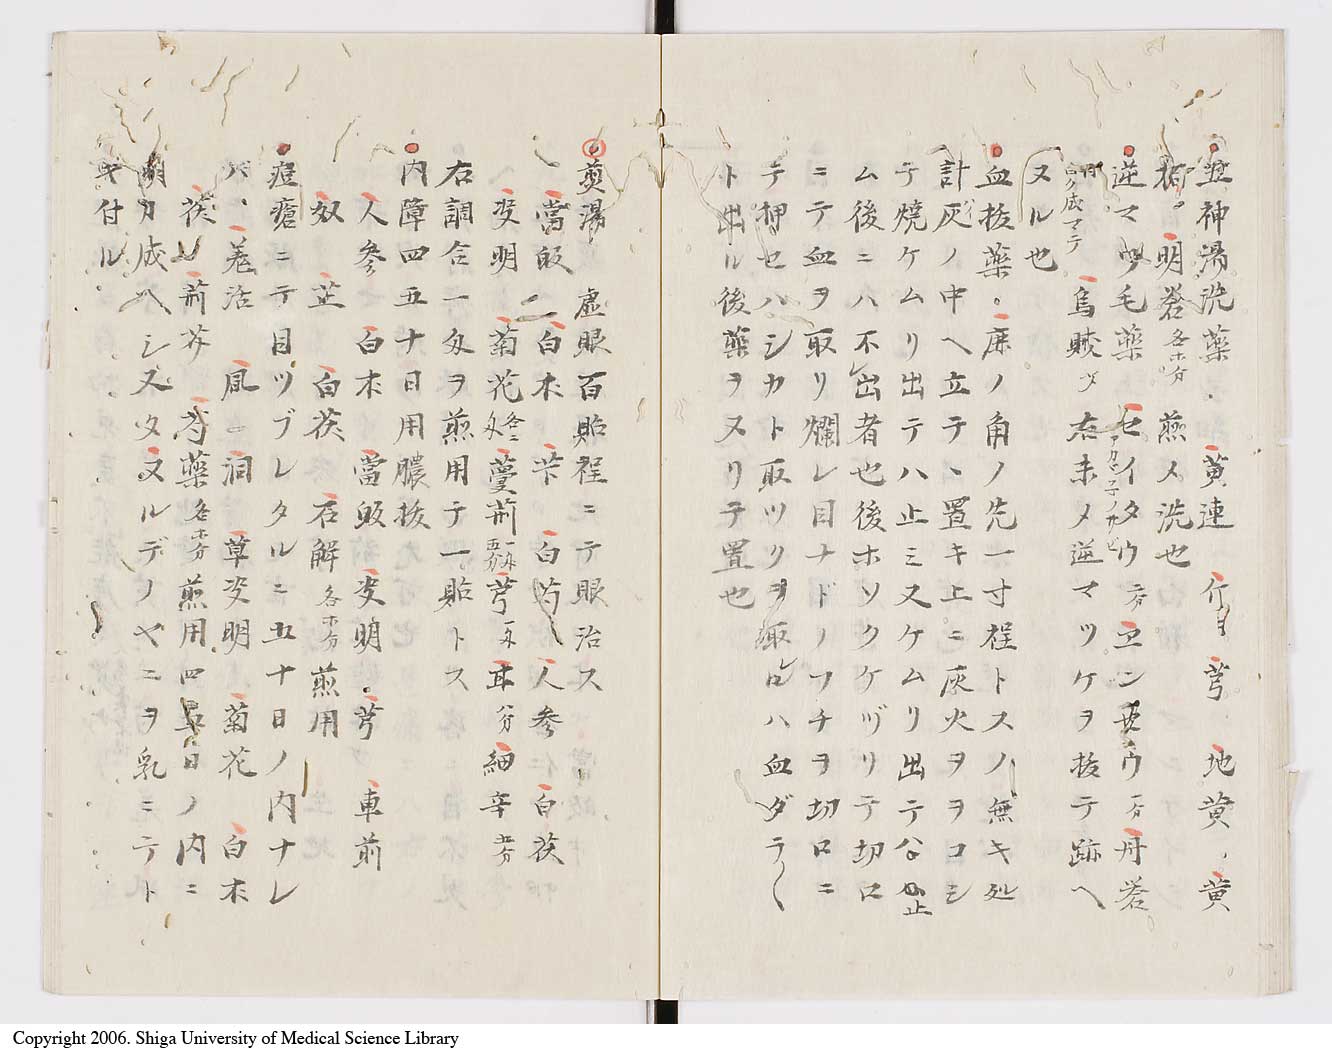 神湯洗薬・黄連 芎 地黄 黄
明礬 各等分 煎メ洗也
逆マツ毛薬 セイタウ 二分 ヱンセウ 一分 丹礬
白ク成マテ 烏賊 右末メ逆マツケヲ抜テ跡ヘ
ヌル也
血抜薬 鹿ノ角ノ先一寸程トスノ無キ処
計灰ノ中ヘ立テヽ置キ上ニ灰火ヲヲコシ
テ焼ケムリ出テハ止ミ又ケムリ出テ
ム後ニハ不出者也後ホソクケヅリテ切口
ニテ血ヲ取リ爛レ目ナドノフチヲ切口ニ
テ押セハシカト取ツリヲ
ハ血ダラ〱
ト出ル後薬ヲヌリテ置也
煎湯 虚眼百貼程ニテ眼治ス
當皈 二 白朮 芐 白芍 人参 仁 白茯
決明 菊花 各二匁 蔓荊 一匁五分 芎 一匁 車 八分 細辛 五分
右調合一匁ヲ煎用テ一貼トス
内障四五十日用膿抜
人参 白朮 當皈 决明・芎 車前
奴 芷 白茯 石解 各等分 煎用
痘瘡ニテ目ツブレタルニ五十日ノ内ナレ
バ、羌活 風 洞 草决明 菊花 白朮
茯 荊芥 芍薬 各等分 煎用四五日ノ内ニ
明カ成ヘシ又タヌルデノヤニヲ乳ニテト
キ付ル